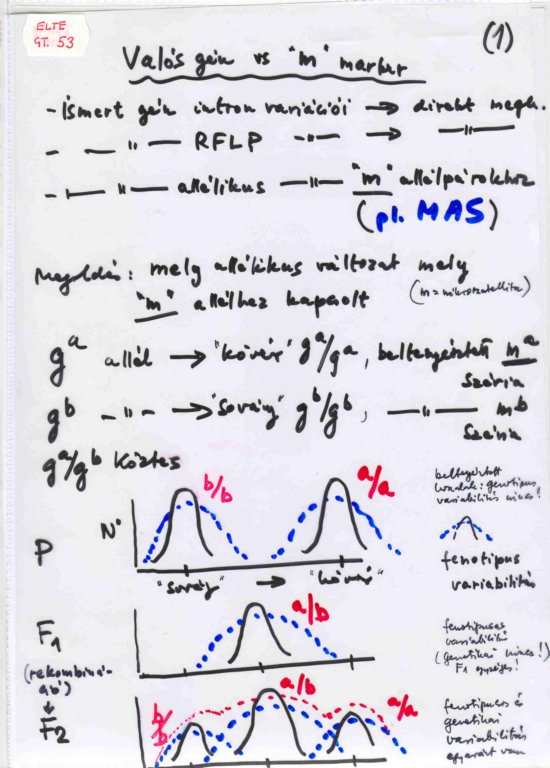 ELTE
GT. 53
(1)
Valós gén vs "m" marker
- Ismert gén intron variációi → direkt megh.
- — " — RFLP — " — → — " —
- — " — allélikus — " — "m" allélpárokhoz
(pl. MAS)
Megoldás: mely allélikus változat mely
"m" allélhez kapcsolt
(m = mikroszatellita)
gᵃ allél → "kövér" gᵃ/gᵃ, beltenyésztett mᵃ
széria
gᵇ - " - → "sovány" gᵇ/gᵇ, — " — mᵇ
széria
gᵃ/gᵇ köztes
b/b
a/a
beltenyésztett
genotípus
variabilitás nincs!
N°
P
fenotípus
variabilitás
"sovány" → "kövér"
F₁
a/b
fenotípusos
variabilitás
(genetikai nincs!)
F₁ egységes!
(rekombiná-
ció)
↓
F₂
b/b
a/b
a/a
fenotípusos és
genetikai
variabilitás
egyaránt van